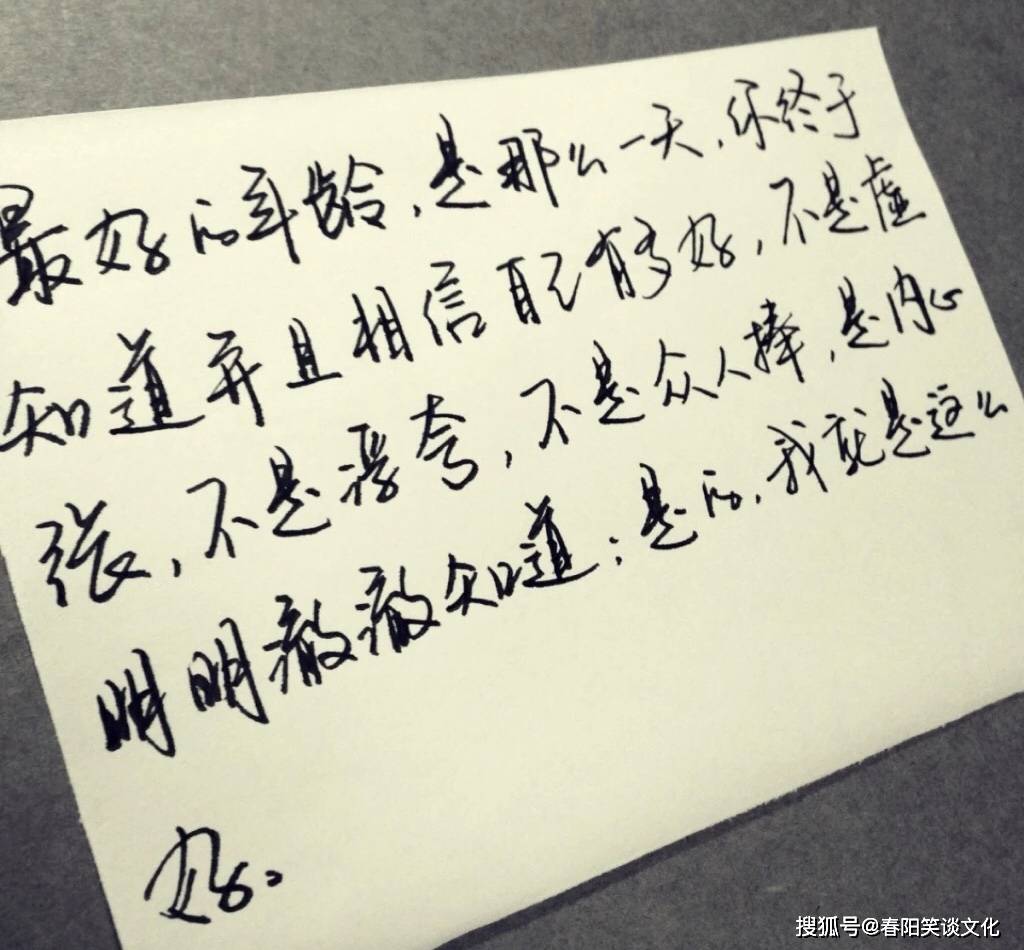 最好的年龄,是那么一天,你终于
知道并且相信自己有多好,不是虚
张,不是浮夸,不是众人捧,是内心
明明澈澈知道:是的,我就是这么
好。
搜狐号@春阳笑谈文化